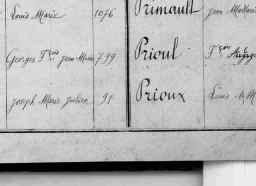 Louis Marie 1076 Primault Jean Mathurin
Georges Fçois Jean Marie 799 Prioul Fçois
Joseph Marie Julien 91 Prioux Louis